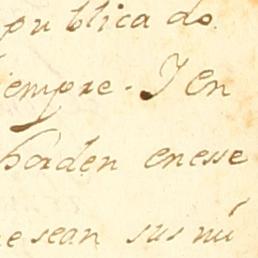 publicado.
iempre. I en
horden enesse
e sean sus mi